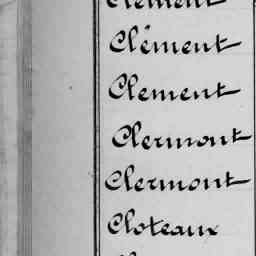 Clement
Clément
Clement
Clermont
Clermont
Cloteaux